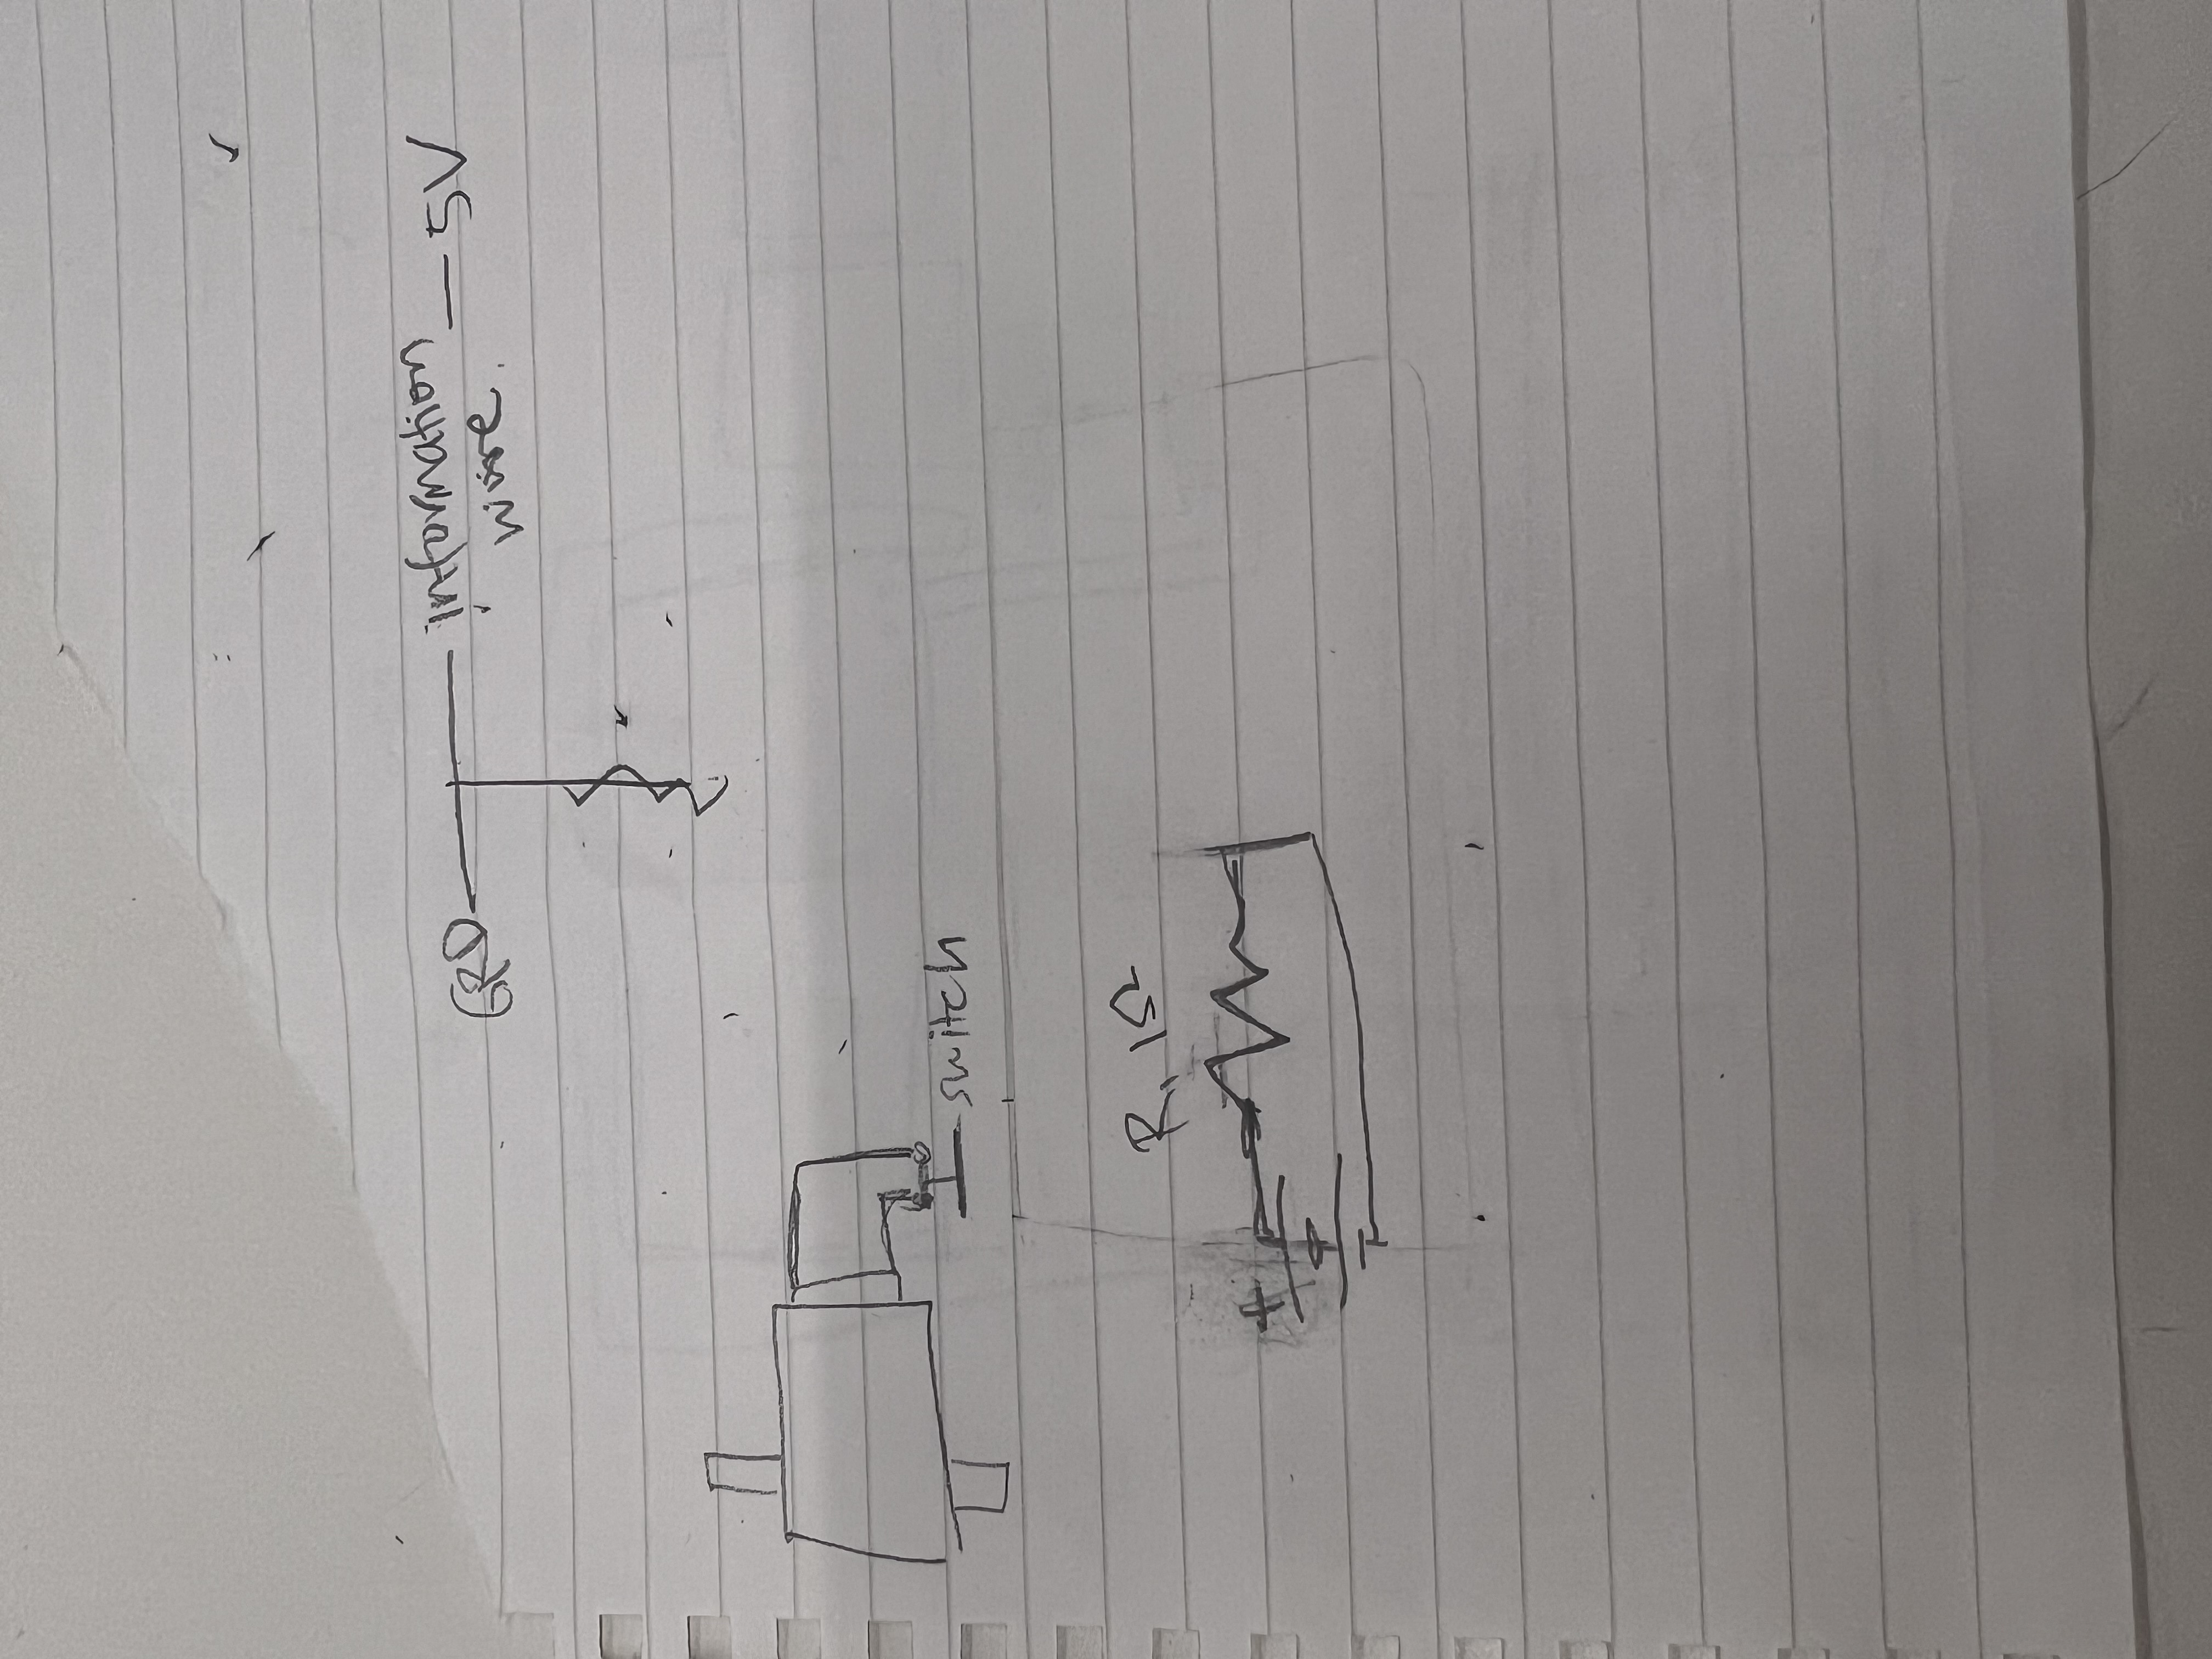 GRD information — 5V
wire.
switch
R, 1Ω
+